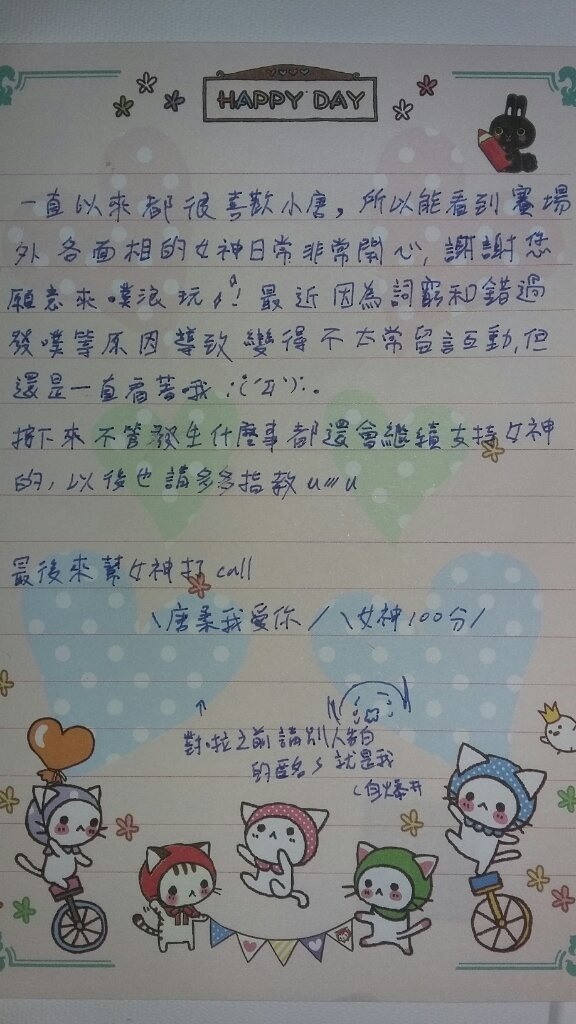 HAPPY DAY
一直以來都很喜歡小唐，所以能看到賽場
外各面相的女神日常非常開心，謝謝您
願意來噗浪玩！最近因為詞窮和錯過
發噗等原因導致變得不太常留言互動，但
還是一直看著哦
接下來不管發生什麼事都還會繼續支持女神
的，以後也請多多指教u///u
最後來幫女神打call
\唐柔我愛你/\女神100分/
↑
對啦之前講別人告白
的匿名 就是我